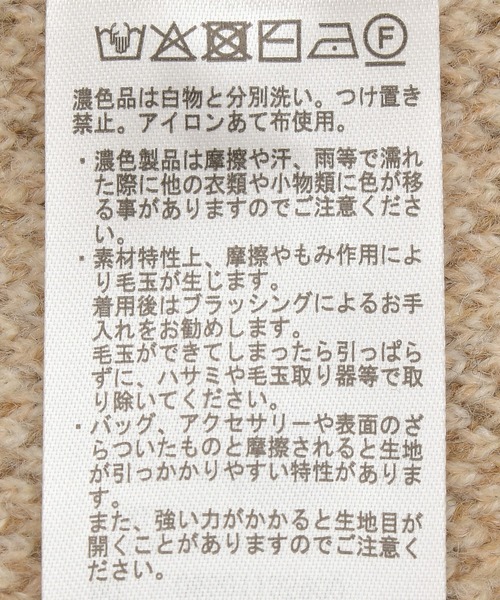 F
濃色品は白物と分別洗い。つけ置き
禁止。アイロンあて布使用。
・濃色製品は摩擦や汗、雨等で濡れ
た際に他の衣類や小物類に色が移
る事がありますのでご注意くださ
い。
・素材特性上、摩擦やもみ作用によ
り毛玉が生じます。
着用後はブラッシングによるお手
入れをお勧めします。
毛玉ができてしまったら引っぱら
ずに、ハサミや毛玉取り器等で取
り除いてください。
・バッグ、アクセサリーや表面のざ
らついたものと摩擦されると生地
が引っかかりやすい特性がありま
す。
また、強い力がかかると生地目が
開くことがありますのでご注意く
ださい。